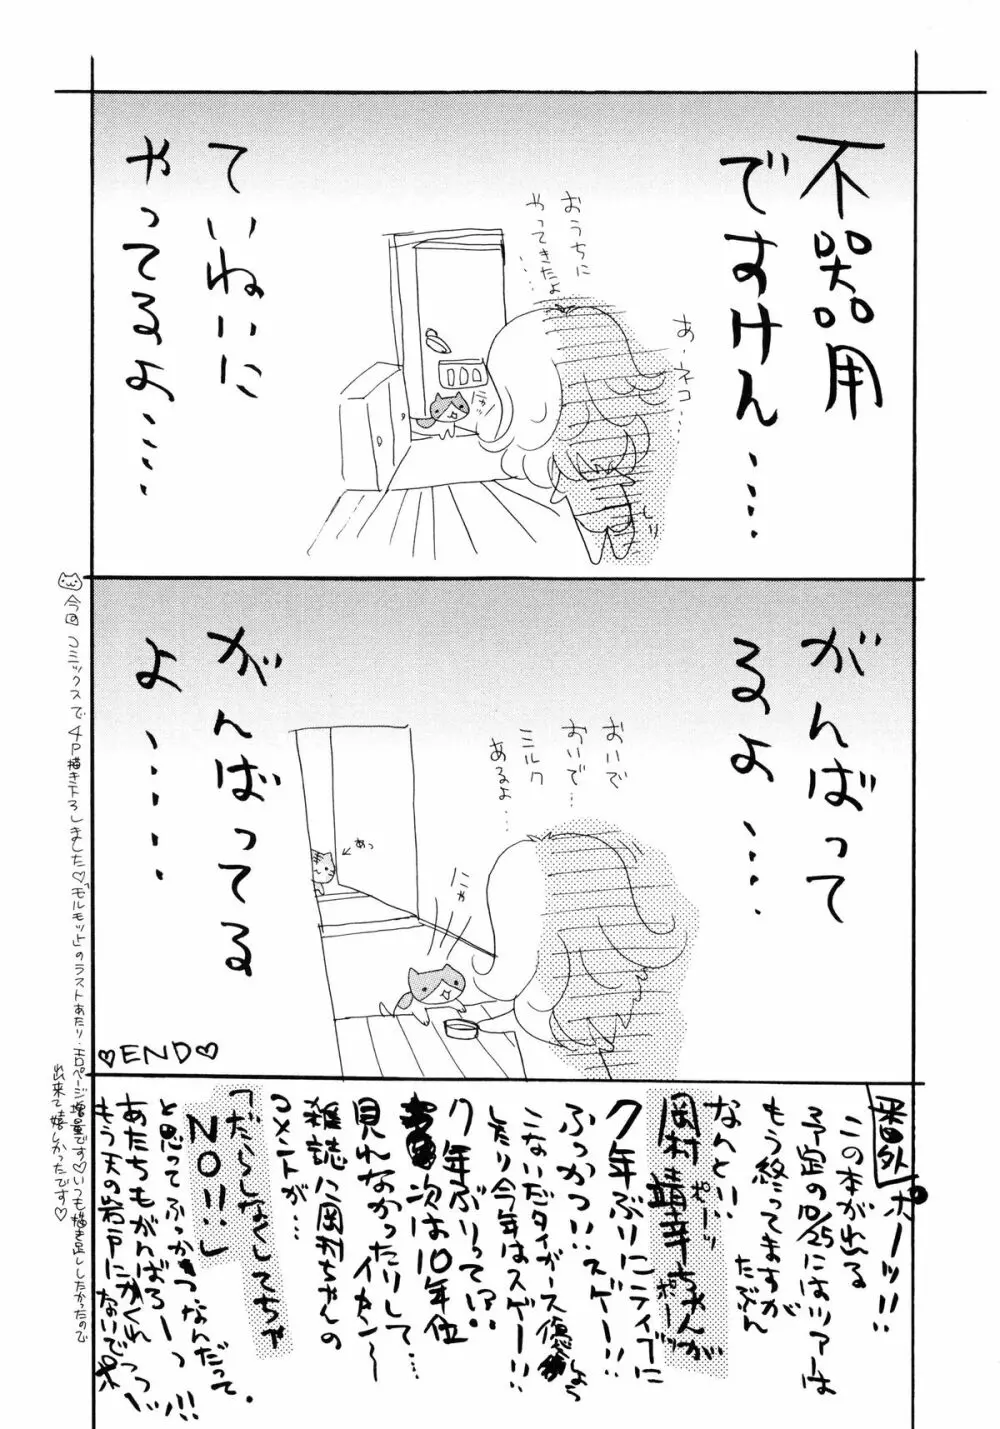 不器用
ですけん…
ていねいに
やってるよ……
おうちに
やってきたよ…
あ・ネコ…
にゃ
がんばって
るよ…
がんばってる
よ……
おいで
おいで…
ミルク
あるよ…
あっ
にゃ
♡END♡
今回コミックスで4P描き下ろしました♡「モルモット」のラストあたり・エロページ増量です♡いつも描き足ししたかったので
出来て嬉しかったです♡
番外
ポーッ!!
この本が出る
予定の10/25にはツアーは
もう終ってますが
たぶん
なんと!!
岡村靖幸ちゃんが
ポーッ
ポーッ
7年ぶりにライブに
ふっかつ!!スゲー!!
こないだタイガース優勝しょう
したり今年はスゲー!!
7年ぶりって!?
次は10年位
見れなかったりして…
イカン〜
雑誌に岡村ちゃんの
コメントが…
「だらしなくしてちゃ
NO!!」
と思ってふっかつなんだって.
あたちもがんばろーっ!!!
もう天の岩戸にかくれ
ないで